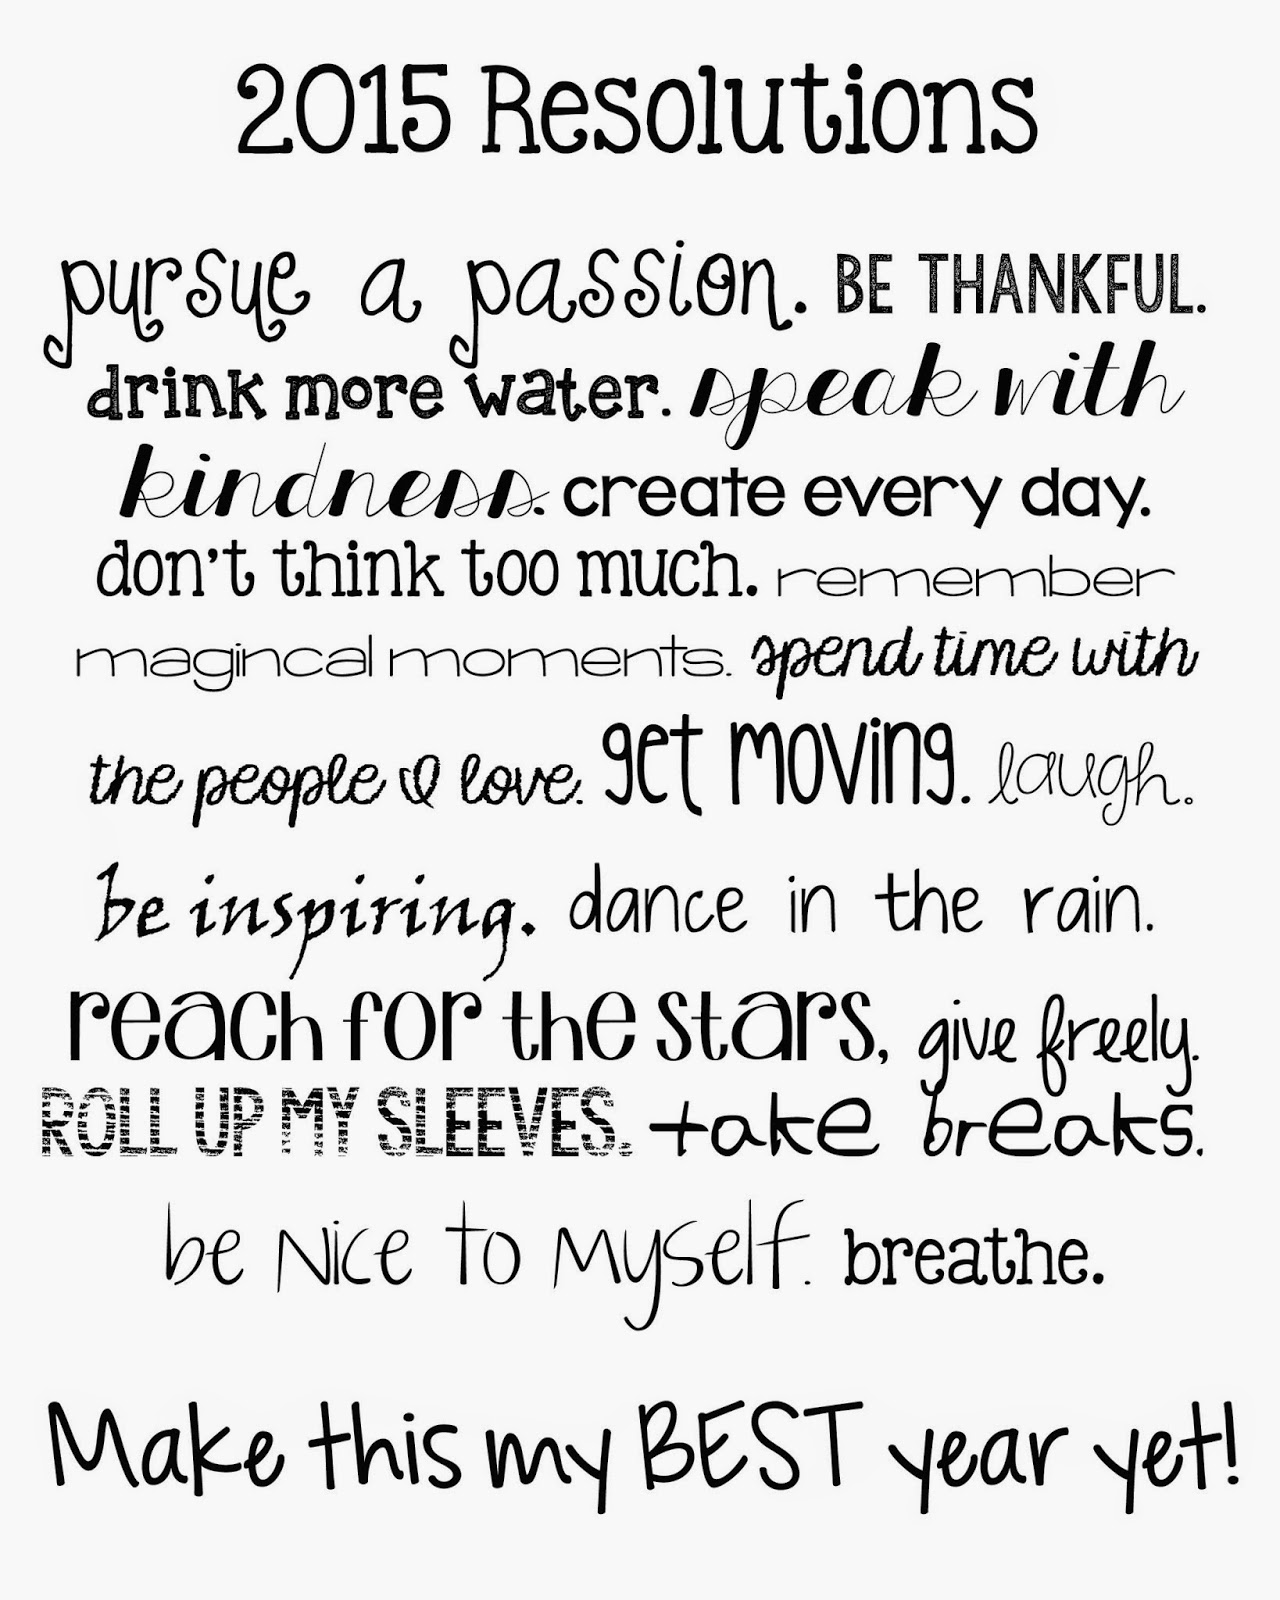 2015 Resolutions
pursue a passion. BE THANKFUL.
drink more water. speak with
kindness. create every day.
don't think too much. remember
magincal moments. spend time with
the people I love. get moving. laugh.
be inspiring. dance in the rain.
reach for the stars, give freely.
ROLL UP MY SLEEVES. take breaks.
be Nice to Myself. breathe.
Make this my BEST year yet!